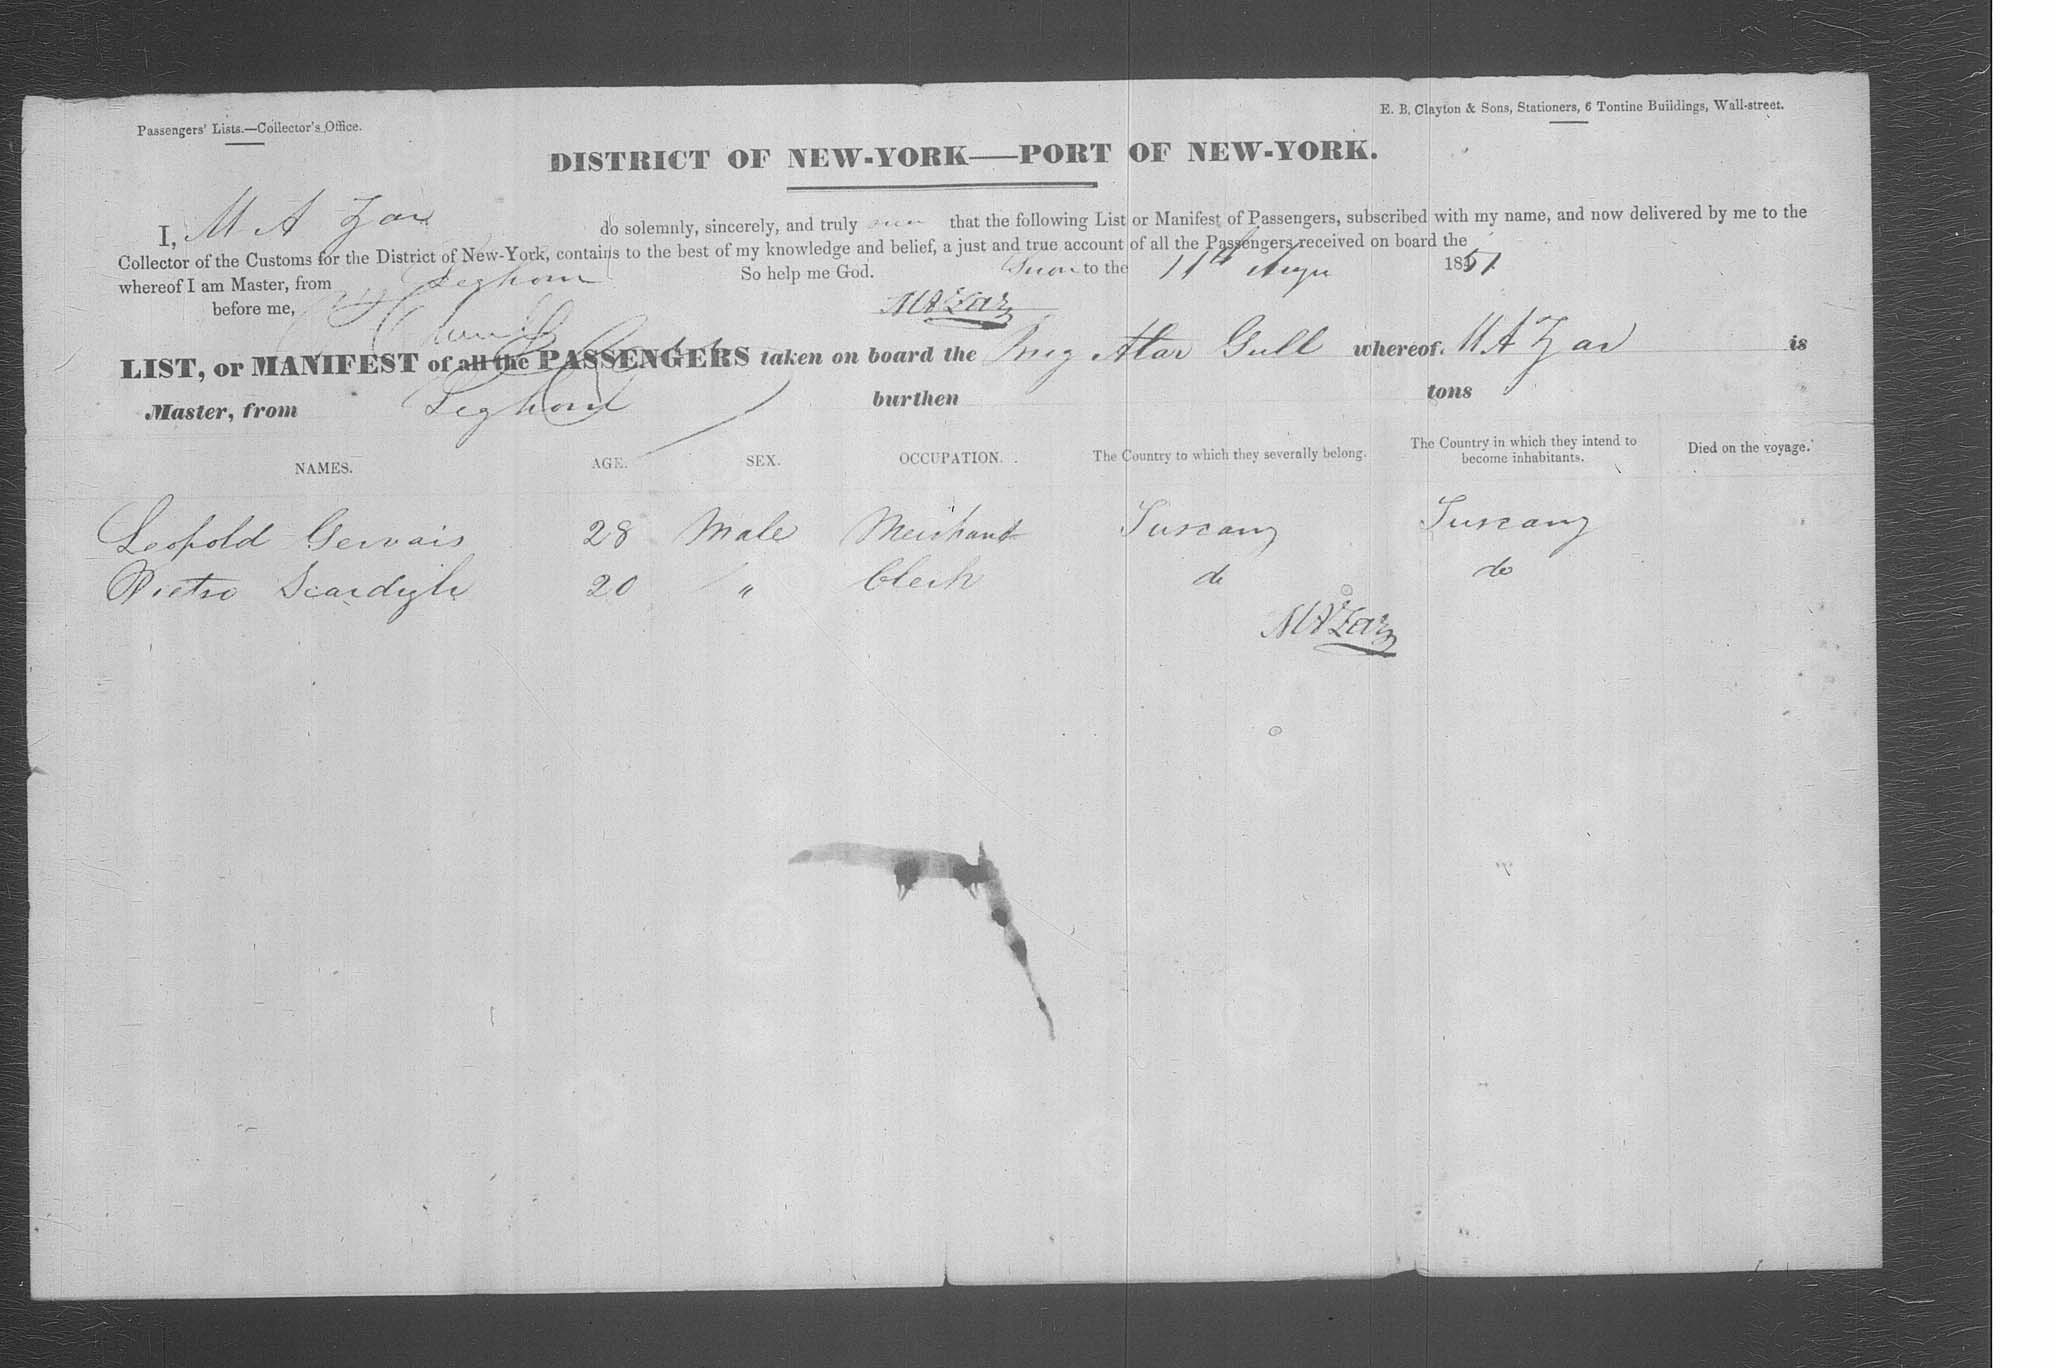 Passengers' Lists.—Collector's Office.
E. B. Clayton & Sons, Stationers, 6 Tontine Buildings, Wall-street.
DISTRICT OF NEW-YORK—PORT OF NEW-YORK.
I, M A Zar do solemnly, sincerely, and truly that the following List or Manifest of Passengers, subscribed with my name, and now delivered by me to the
Collector of the Customs for the District of New-York, contains to the best of my knowledge and belief, a just and true account of all the Passengers received on board the
whereof I am Master, from Leghorn So help me God. to the 11th 1851
before me, M A Zar
LIST, or MANIFEST of all the PASSENGERS taken on board the Brig Atar Gull whereof M A Zar is
Master, from Leghorn burthen tons
NAMES. AGE. SEX. OCCUPATION. The Country to which they severally belong. The Country in which they intend to become inhabitants. Died on the voyage.
Leopold Gervais 28 Male Merchant Tuscany Tuscany
Pietro Scardigli 20 " Clerk do do
M A Zar